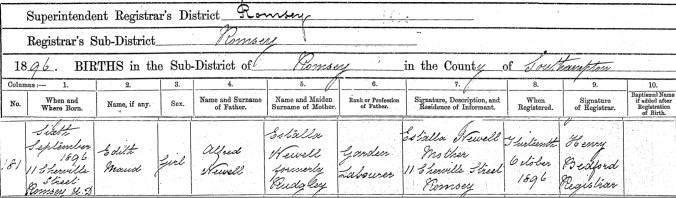 Superintendent Registrar's District Romsey
Registrar's Sub-District Romsey
1896. BIRTHS in the Sub-District of Romsey in the County of Southampton
Columns:— 1. 2. 3. 4. 5. 6. 7. 8. 9. 10.
No. When and Where Born. Name, if any. Sex. Name and Surname of Father. Name and Maiden Surname of Mother. Rank or Profession of Father. Signature, Description, and Residence of Informant. When Registered. Signature of Registrar. Baptismal Name if added after Registration of Birth.
181
Sixth
September
1896
11 Cherville
Street
Romsey U.D
Edith
Maud
Girl
Alfred
Newell
Estalla
Newell
formerly
Rudgley
Garden
Labourer
Estalla Newell
Mother
11 Cherville Street
Romsey
Thirteenth
October
1896
Henry
Bedford
Registrar